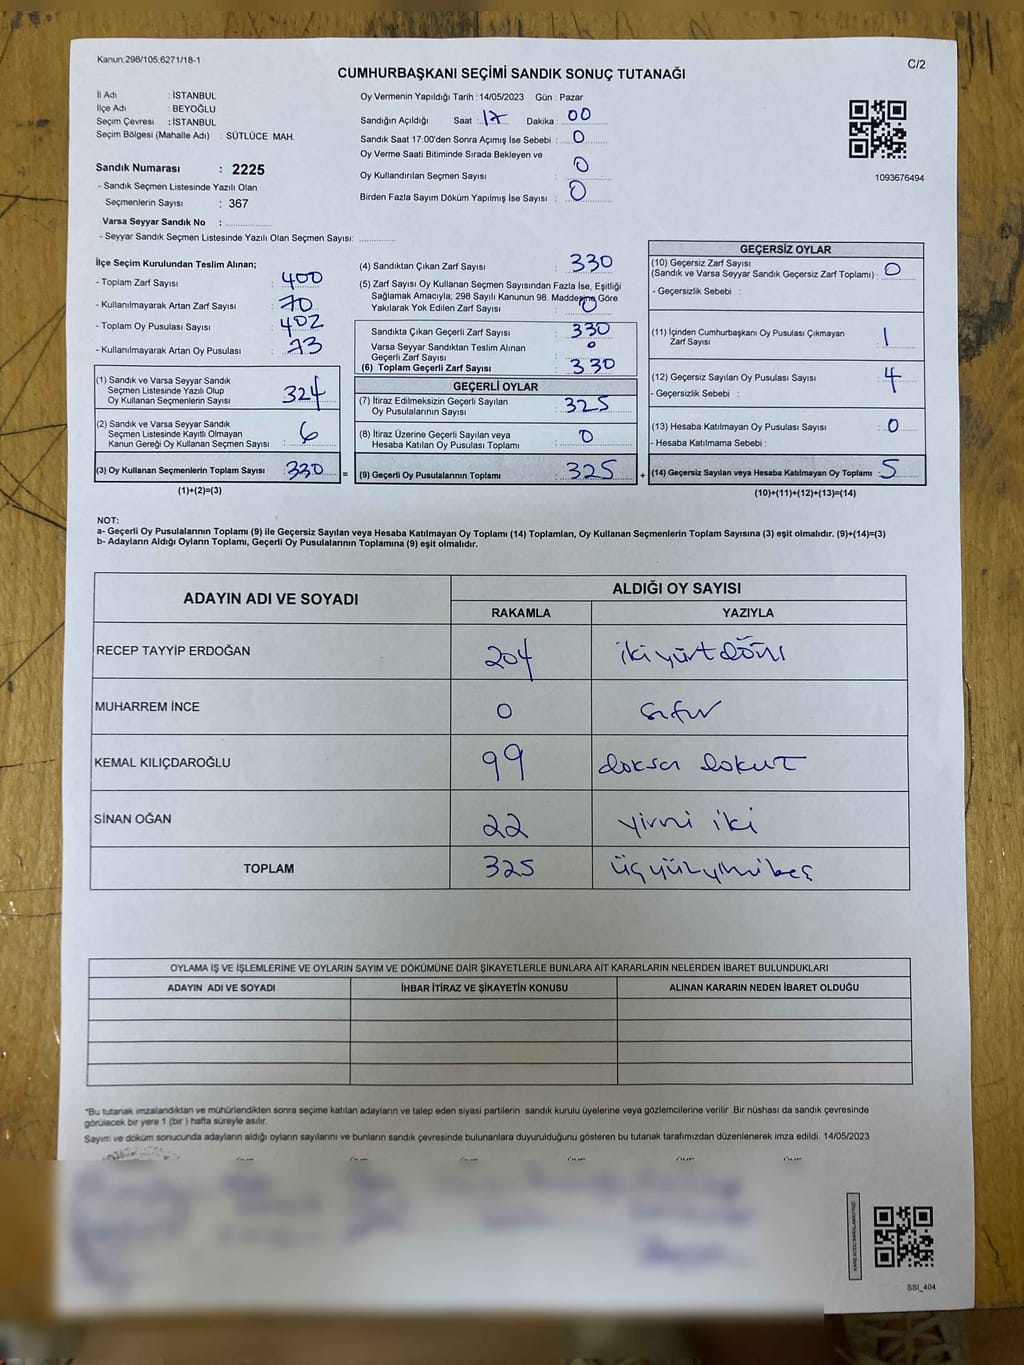 Kanun;298/105,6271/18-1
C/2
CUMHURBAŞKANI SEÇİMİ SANDIK SONUÇ TUTANAĞI
İl Adı : İSTANBUL
İlçe Adı : BEYOĞLU
Seçim Çevresi : İSTANBUL
Seçim Bölgesi (Mahalle Adı) : SÜTLÜCE MAH.
Sandık Numarası : 2225
- Sandık Seçmen Listesinde Yazılı Olan
Seçmenlerin Sayısı : 367
Varsa Seyyar Sandık No :
- Seyyar Sandık Seçmen Listesinde Yazılı Olan Seçmen Sayısı:
Oy Vermenin Yapıldığı Tarih :14/05/2023 Gün : Pazar
Sandığın Açıldığı Saat : 17 Dakika : 00
Sandık Saat 17:00'den Sonra Açımış İse Sebebi : 0
Oy Verme Saati Bitiminde Sırada Bekleyen ve
Oy Kullandırılan Seçmen Sayısı : 0
Birden Fazla Sayım Döküm Yapılmış İse Sayısı : 0
1093676494
İlçe Seçim Kurulundan Teslim Alınan;
- Toplam Zarf Sayısı : 400
- Kullanılmayarak Artan Zarf Sayısı : 70
- Toplam Oy Pusulası Sayısı : 402
- Kullanılmayarak Artan Oy Pusulası : 73
(1) Sandık ve Varsa Seyyar Sandık
Seçmen Listesinde Yazılı Olup
Oy Kullanan Seçmenlerin Sayısı : 324
(2) Sandık ve Varsa Seyyar Sandık
Seçmen Listesinde Kayıtlı Olmayan
Kanun Gereği Oy Kullanan Seçmen Sayısı : 6
(3) Oy Kullanan Seçmenlerin Toplam Sayısı : 330 =
(1)+(2)=(3)
(4) Sandıktan Çıkan Zarf Sayısı : 330
(5) Zarf Sayısı Oy Kullanan Seçmen Sayısından Fazla İse, Eşitliği
Sağlamak Amacıyla, 298 Sayılı Kanunun 98. Maddesine Göre
Yakılarak Yok Edilen Zarf Sayısı : 0
Sandıkta Çıkan Geçerli Zarf Sayısı : 330
Varsa Seyyar Sandıktan Teslim Alınan
Geçerli Zarf Sayısı : 0
(6) Toplam Geçerli Zarf Sayısı : 330
GEÇERLİ OYLAR
(7) İtiraz Edilmeksizin Geçerli Sayılan
Oy Pusulalarının Sayısı : 325
(8) İtiraz Üzerine Geçerli Sayılan veya
Hesaba Katılan Oy Pusulası Toplamı : 0
(9) Geçerli Oy Pusulalarının Toplamı : 325 +
GEÇERSİZ OYLAR
(10) Geçersiz Zarf Sayısı
(Sandık ve Varsa Seyyar Sandık Geçersiz Zarf Toplamı) : 0
- Geçersizlik Sebebi :
(11) İçinden Cumhurbaşkanı Oy Pusulası Çıkmayan
Zarf Sayısı : 1
(12) Geçersiz Sayılan Oy Pusulası Sayısı : 4
- Geçersizlik Sebebi :
(13) Hesaba Katılmayan Oy Pusulası Sayısı : 0
- Hesaba Katılmama Sebebi :
(14) Geçersiz Sayılan veya Hesaba Katılmayan Oy Toplamı : 5
(10)+(11)+(12)+(13)=(14)
NOT:
a- Geçerli Oy Pusulalarının Toplamı (9) ile Geçersiz Sayılan veya Hesaba Katılmayan Oy Toplamı (14) Toplamları, Oy Kullanan Seçmenlerin Toplam Sayısına (3) eşit olmalıdır. (9)+(14)=(3)
b- Adayların Aldığı Oyların Toplamı, Geçerli Oy Pusulalarının Toplamına (9) eşit olmalıdır.
ADAYIN ADI VE SOYADI
ALDIĞI OY SAYISI
RAKAMLA YAZIYLA
RECEP TAYYİP ERDOĞAN 204 iki yüz dört
MUHARREM İNCE 0 sıfır
KEMAL KILIÇDAROĞLU 99 doksan dokuz
SİNAN OĞAN 22 yirmi iki
TOPLAM 325 üçyüzyirmibeş
OYLAMA İŞ VE İŞLEMLERİNE VE OYLARIN SAYIM VE DÖKÜMÜNE DAİR ŞİKAYETLERLE BUNLARA AİT KARARLARIN NELERDEN İBARET BULUNDUKLARI
ADAYIN ADI VE SOYADI İHBAR İTİRAZ VE ŞİKAYETİN KONUSU ALINAN KARARIN NEDEN İBARET OLDUĞU
"Bu tutanak imzalandıktan ve mühürlendikten sonra seçime katılan adayların ve talep eden siyasi partilerin sandık kurulu üyelerine veya gözlemcilerine verilir .Bir nüshası da sandık çevresinde
görülecek bir yere 1 (bir ) hafta süreyle asılır.
Sayım ve döküm sonucunda adayların aldığı oyların sayılarını ve bunların sandık çevresinde bulunanlara duyurulduğunu gösteren bu tutanak tarafımızdan düzenlenerek imza edildi. 14/05/2023
SSI_404